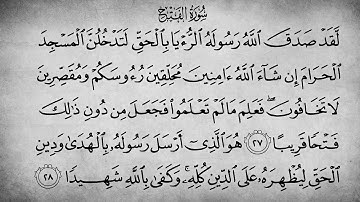 سُورَةُ الفَتْحِ
لَّقَدْ صَدَقَ ٱللَّهُ رَسُولَهُ ٱلرُّءْيَا بِٱلْحَقِّ لَتَدْخُلُنَّ ٱلْمَسْجِدَ
ٱلْحَرَامَ إِن شَآءَ ٱللَّهُ ءَامِنِينَ مُحَلِّقِينَ رُءُوسَكُمْ وَمُقَصِّرِينَ
لَا تَخَافُونَ ۖ فَعَلِمَ مَا لَمْ تَعْلَمُوا۟ فَجَعَلَ مِن دُونِ ذَٰلِكَ
فَتْحًا قَرِيبًا ٢٧ هُوَ ٱلَّذِىٓ أَرْسَلَ رَسُولَهُۥ بِٱلْهُدَىٰ وَدِينِ
ٱلْحَقِّ لِيُظْهِرَهُۥ عَلَى ٱلدِّينِ كُلِّهِۦ ۚ وَكَفَىٰ بِٱللَّهِ شَهِيدًا ٢٨